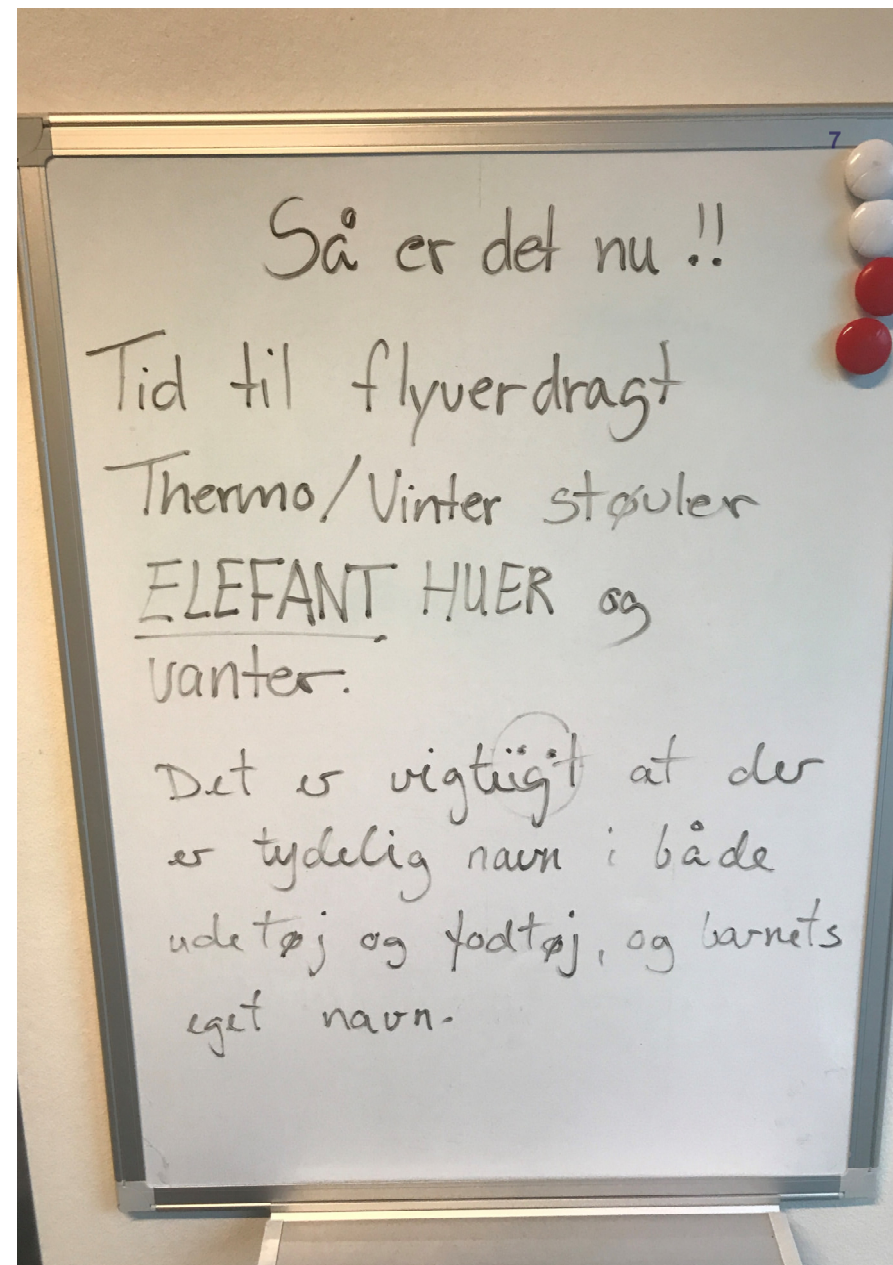 7
Så er det nu !!
Tid til flyverdragt
Thermo/Vinter støvler
ELEFANT HUER og
vanter.
Det er vigtiigt at der
er tydelig navn i både
udetøj og fodtøj, og barnets
eget navn.